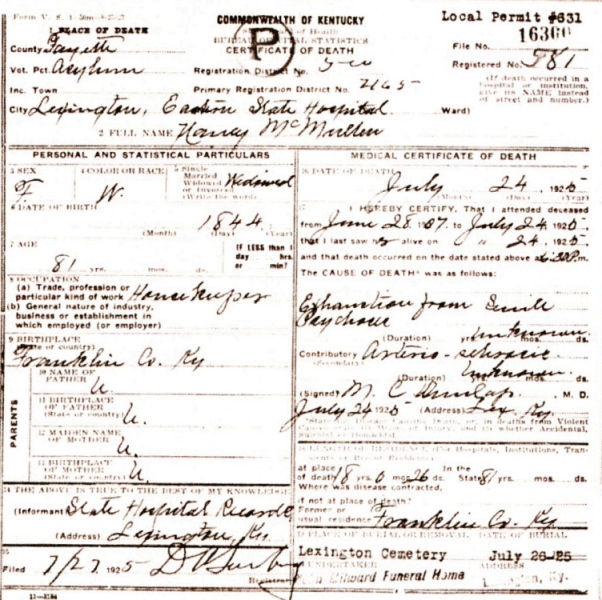 Form V. S.
COMMONWEALTH OF KENTUCKY
Local Permit #631
1 PLACE OF DEATH
of Health
16360
BUREAU OF VITAL STATISTICS
County Fayette
CERTIFICATE OF DEATH
File No.
P
Vot. Pct. Asylum
Registration District No.
Registered No. 581
Inc. Town
Primary Registration District No. 2165
(If death occurred in a hospital or institution, give its NAME instead of street and number.)
City Lexington, Eastern State Hospital Ward)
2 FULL NAME Nancy McMullen
PERSONAL AND STATISTICAL PARTICULARS
3 SEX
F.
4 COLOR OR RACE
W.
5 Single
Married
Widowed
or Divorced
(Write the word)
Widowed
6 DATE OF BIRTH
1844
(Month) (Day) (Year)
7 AGE
81 yrs. mos. ds.
If LESS than 1
day hrs.
or min?
8 OCCUPATION
(a) Trade, profession or
particular kind of work Housekeeper
(b) General nature of industry,
business or establishment in
which employed (or employer)
9 BIRTHPLACE
(State or country)
Franklin Co. Ky
PARENTS
10 NAME OF
FATHER U.
11 BIRTHPLACE
OF FATHER
(State or country) U.
12 MAIDEN NAME
OF MOTHER U.
13 BIRTHPLACE
OF MOTHER
(State or country) U.
14 THE ABOVE IS TRUE TO THE BEST OF MY KNOWLEDGE
(Informant) State Hospital Records
(Address) Lexington, Ky.
15
Filed 7/27 1925
Registrar
11-3184
MEDICAL CERTIFICATE OF DEATH
16 DATE OF DEATH
July 24 1925
(Month) (Day) (Year)
17 I HEREBY CERTIFY, That I attended deceased
from June 28 1907, to July 24 1925
that I last saw h alive on " 24, 1925
and that death occurred on the date stated above at
The CAUSE OF DEATH* was as follows:
Exhaustion from Senile
Psychosis
(Duration) Unknown yrs. mos. ds.
Contributory Arterio-
(Secondary)
(Duration) Unknown yrs. mos. ds.
(Signed) M. C. Dunlap, M. D.
July 24 1925 (Address) Lex, Ky.
18 LENGTH OF RESIDENCE (For Hospitals, Institutions,
at place
of death 18 yrs. 0 mos. 26 ds. In the State 81 yrs. mos. ds.
Where was disease contracted,
if not at place of death?
Former or
usual residence Franklin Co. Ky
19 PLACE OF BURIAL OR REMOVAL DATE OF BURIAL
Lexington Cemetery July 26-25
UNDERTAKER ADDRESS
Milward Funeral Home Ky.